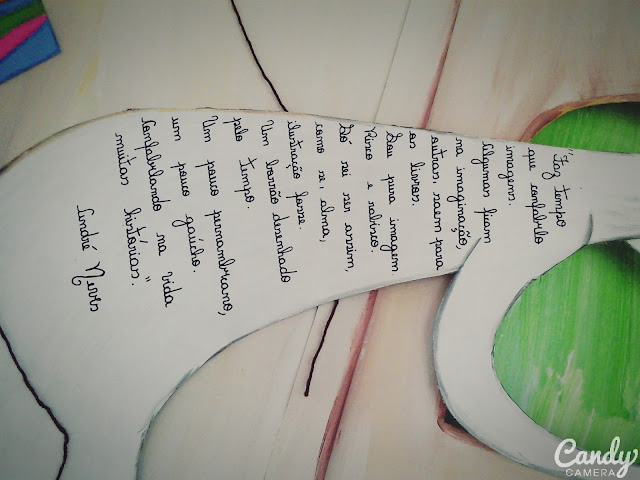 "Faz tempo
que confabulo
imagens.
Algumas ficam
na imaginação,
outras, saem para
os livros.
Sou pura imagem
Risco e rabisco.
Só sei ser assim,
como se, alma,
ilustração fosse.
Um borrão desenhado
pelo tempo.
Um pouco pernambucano,
um pouco gaúcho.
Confabulando na vida
muitas histórias."
André Neves
Candy
CAMERA